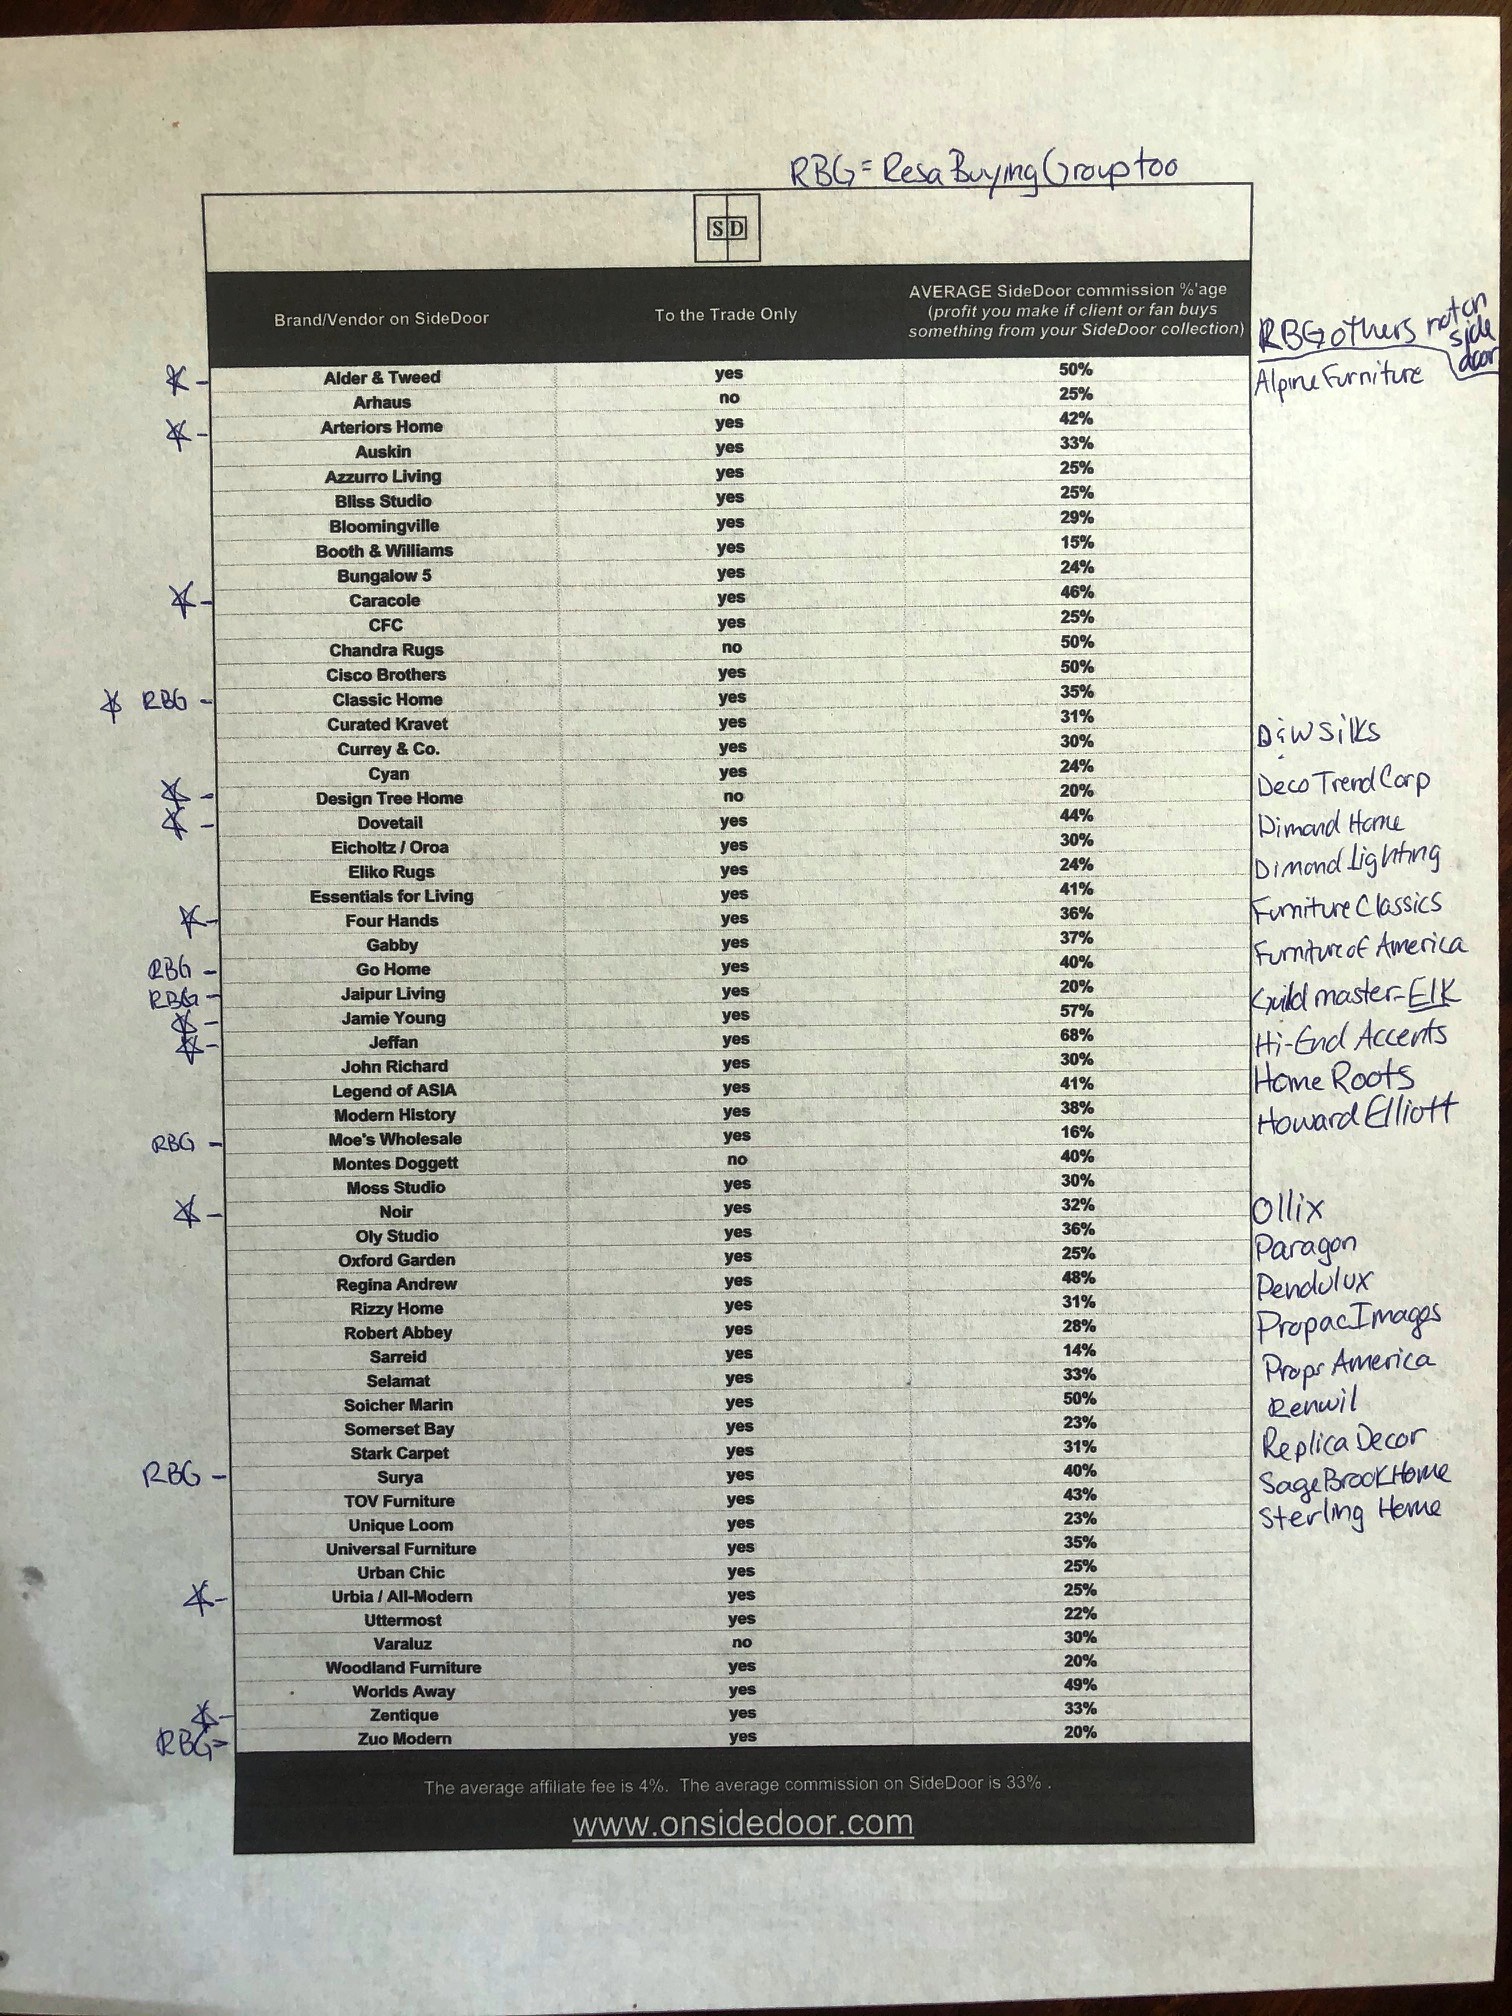 RBG = Resa Buying Group too
SD
Brand/Vendor on SideDoor To the Trade Only AVERAGE SideDoor commission %'age
(profit you make if client or fan buys
something from your SideDoor collection)
RBG others not on
side
door
Alder & Tweed yes 50% Alpine Furniture
Arhaus no 25%
Arteriors Home yes 42%
Auskin yes 33%
Azzurro Living yes 25%
Bliss Studio yes 25%
Bloomingville yes 29%
Booth & Williams yes 15%
Bungalow 5 yes 24%
Caracole yes 46%
CFC yes 25%
Chandra Rugs no 50%
Cisco Brothers yes 50%
RBG - Classic Home yes 35%
Curated Kravet yes 31% D&W Silks
Currey & Co. yes 30%
Cyan yes 24%
Design Tree Home no 20% Deco Trend Corp
Dovetail yes 44% Dimond Home
Eicholtz / Oroa yes 30%
Eliko Rugs yes 24% Dimond Lighting
Essentials for Living yes 41%
Four Hands yes 36% Furniture Classics
Gabby yes 37% Furniture of America
RBG - Go Home yes 40%
RBG - Jaipur Living yes 20% Guild master - Elk
Jamie Young yes 57%
Jeffan yes 68% Hi-End Accents
John Richard yes 30% Home Roots
Legend of ASIA yes 41%
Modern History yes 38% Howard Elliott
RBG - Moe's Wholesale yes 16%
Montes Doggett no 40%
Moss Studio yes 30%
Noir yes 32% Ollix
Oly Studio yes 36% Paragon
Oxford Garden yes 25%
Regina Andrew yes 48% Pendulux
Rizzy Home yes 31% Propac Images
Robert Abbey yes 28%
Sarreid yes 14% Props America
Selamat yes 33%
Soicher Marin yes 50% Renwil
Somerset Bay yes 23% Replica Decor
Stark Carpet yes 31%
RBG - Surya yes 40% SageBrook Home
TOV Furniture yes 43% Sterling Home
Unique Loom yes 23%
Universal Furniture yes 35%
Urban Chic yes 25%
Urbia / All-Modern yes 25%
Uttermost yes 22%
Varaluz no 30%
Woodland Furniture yes 20%
Worlds Away yes 49%
Zentique yes 33%
RBG - Zuo Modern yes 20%
The average affiliate fee is 4%. The average commission on SideDoor is 33% .
www.onsidedoor.com